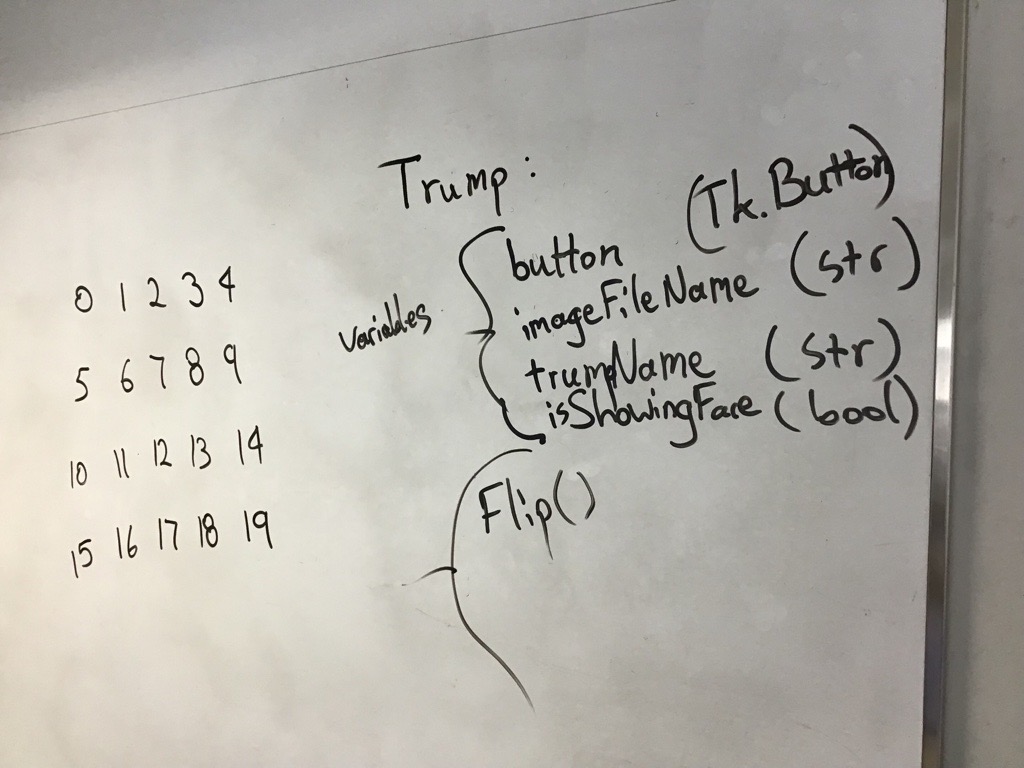 0 1 2 3 4
5 6 7 8 9
10 11 12 13 14
15 16 17 18 19
Trump:
variables
button (Tk.Button)
imageFileName (str)
trumpName (str)
isShowingFace (bool)
Flip()